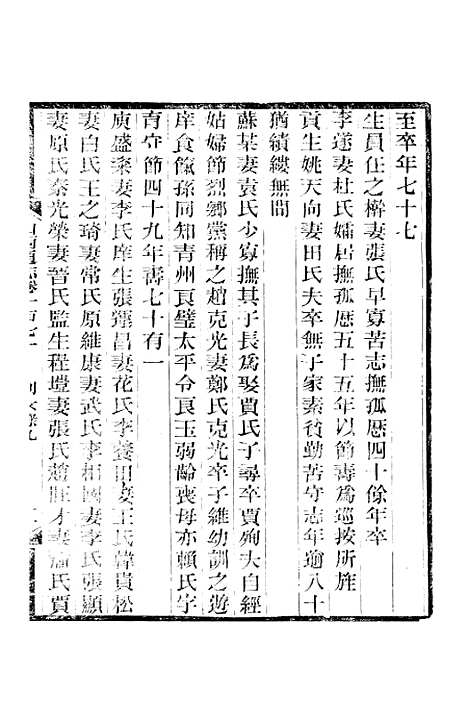 至卒年七十七
生員任之樺妻張氏早寡苦志撫孤歴四十餘年卒
李遂妻杜氏孀居撫孤歴五十五年以節壽爲巡按所旌
貢生姚天向妻田氏夫卒無子家素貧勤苦守志年逾八十
猶績縷無間
蘇某妻袁氏少寡撫其子長爲娶賈氏子尋卒賈殉夫自經
姑婦節烈鄉黨稱之趙克光妻鄭氏克光卒子維幼訓之遊
庠食餼孫同知青州良璧太平令良玉弱齡喪母亦賴氏字
育守節四十九年壽七十有一
庾盛妻李氏庠生張蘊昌妻花氏李養田妻王氏韓貴松
妻白氏王之琦妻常氏原維康妻武氏李相國妻李氏張顯
妻原氏秦光榮妻晉氏監生程塏妻張氏趙旺才妻氏賈